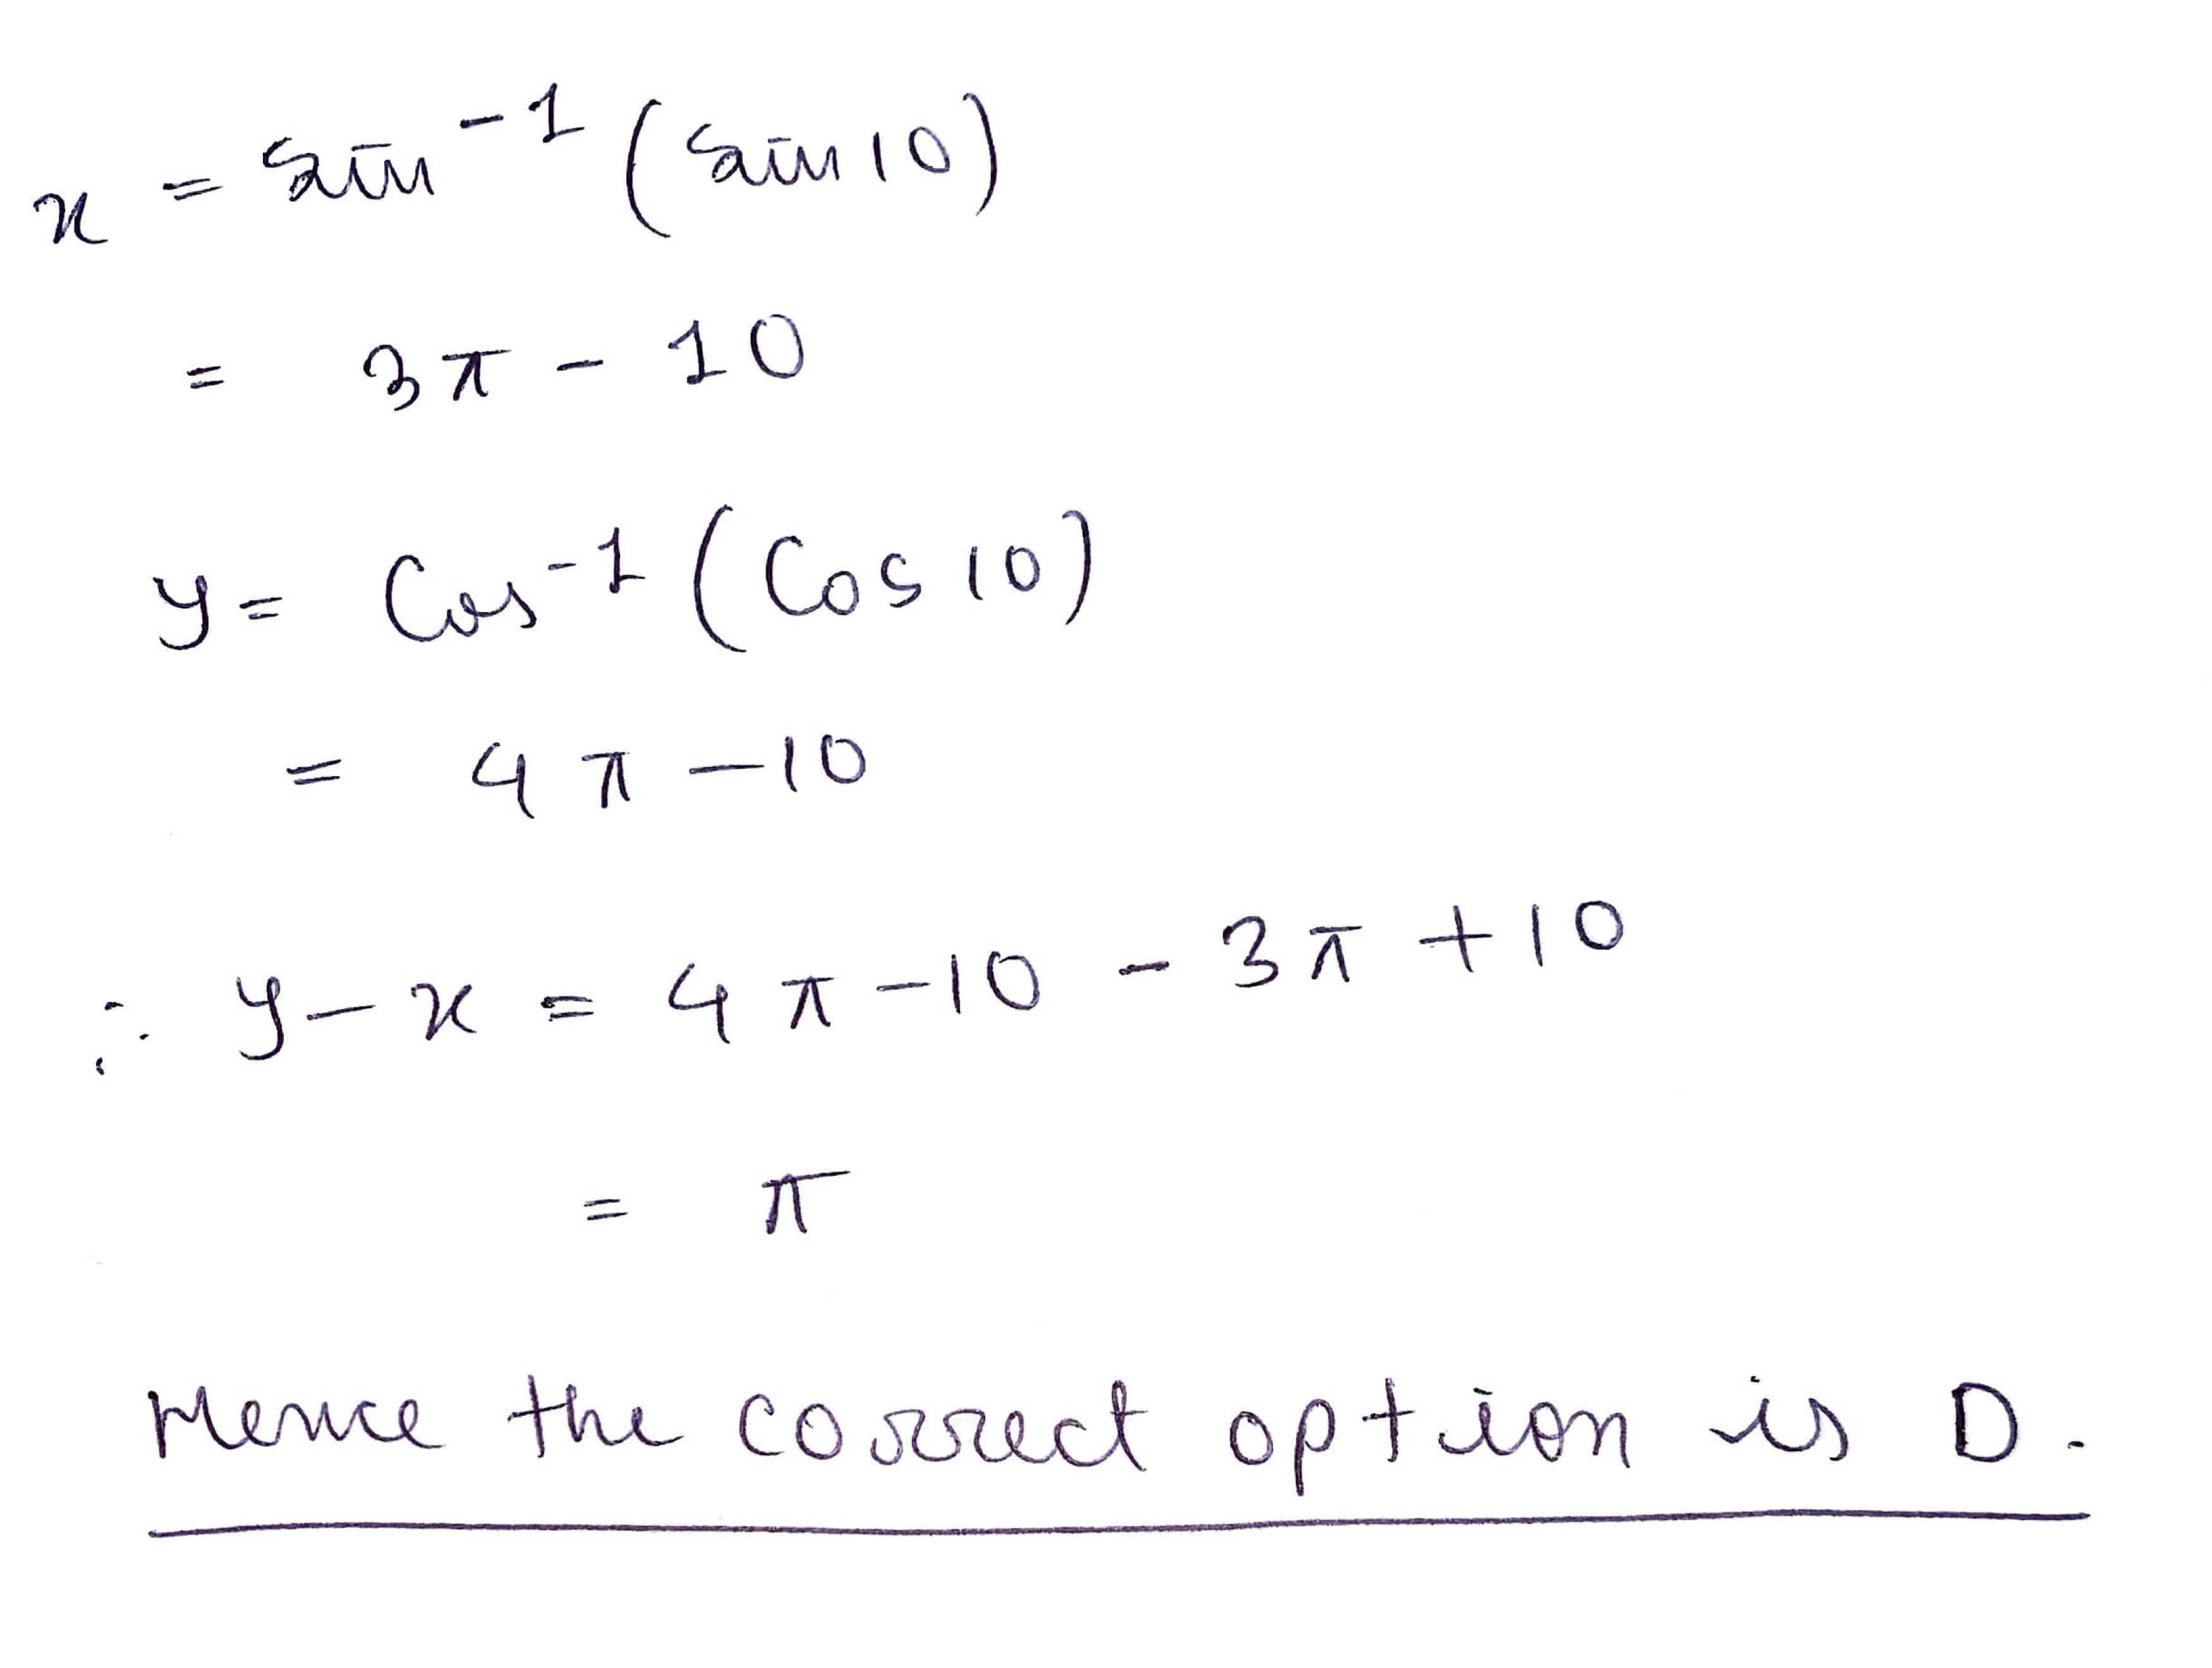 x = sin⁻¹ (sin 10)
= 3π - 10
y = Cos⁻¹ (Cos 10)
= 4π - 10
∴ y - x = 4π - 10 - 3π + 10
= π
Hence the correct option is D.